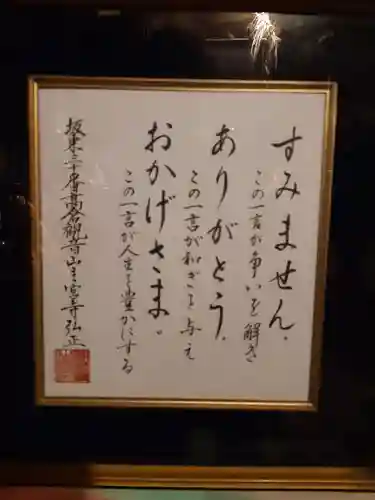 すみません.
この一言が争いを解き
ありがとう.
この一言が和ぎを与え
おかげさま。
この一言が人生を豊かにする
坂東三十
高倉観音山主
弘正